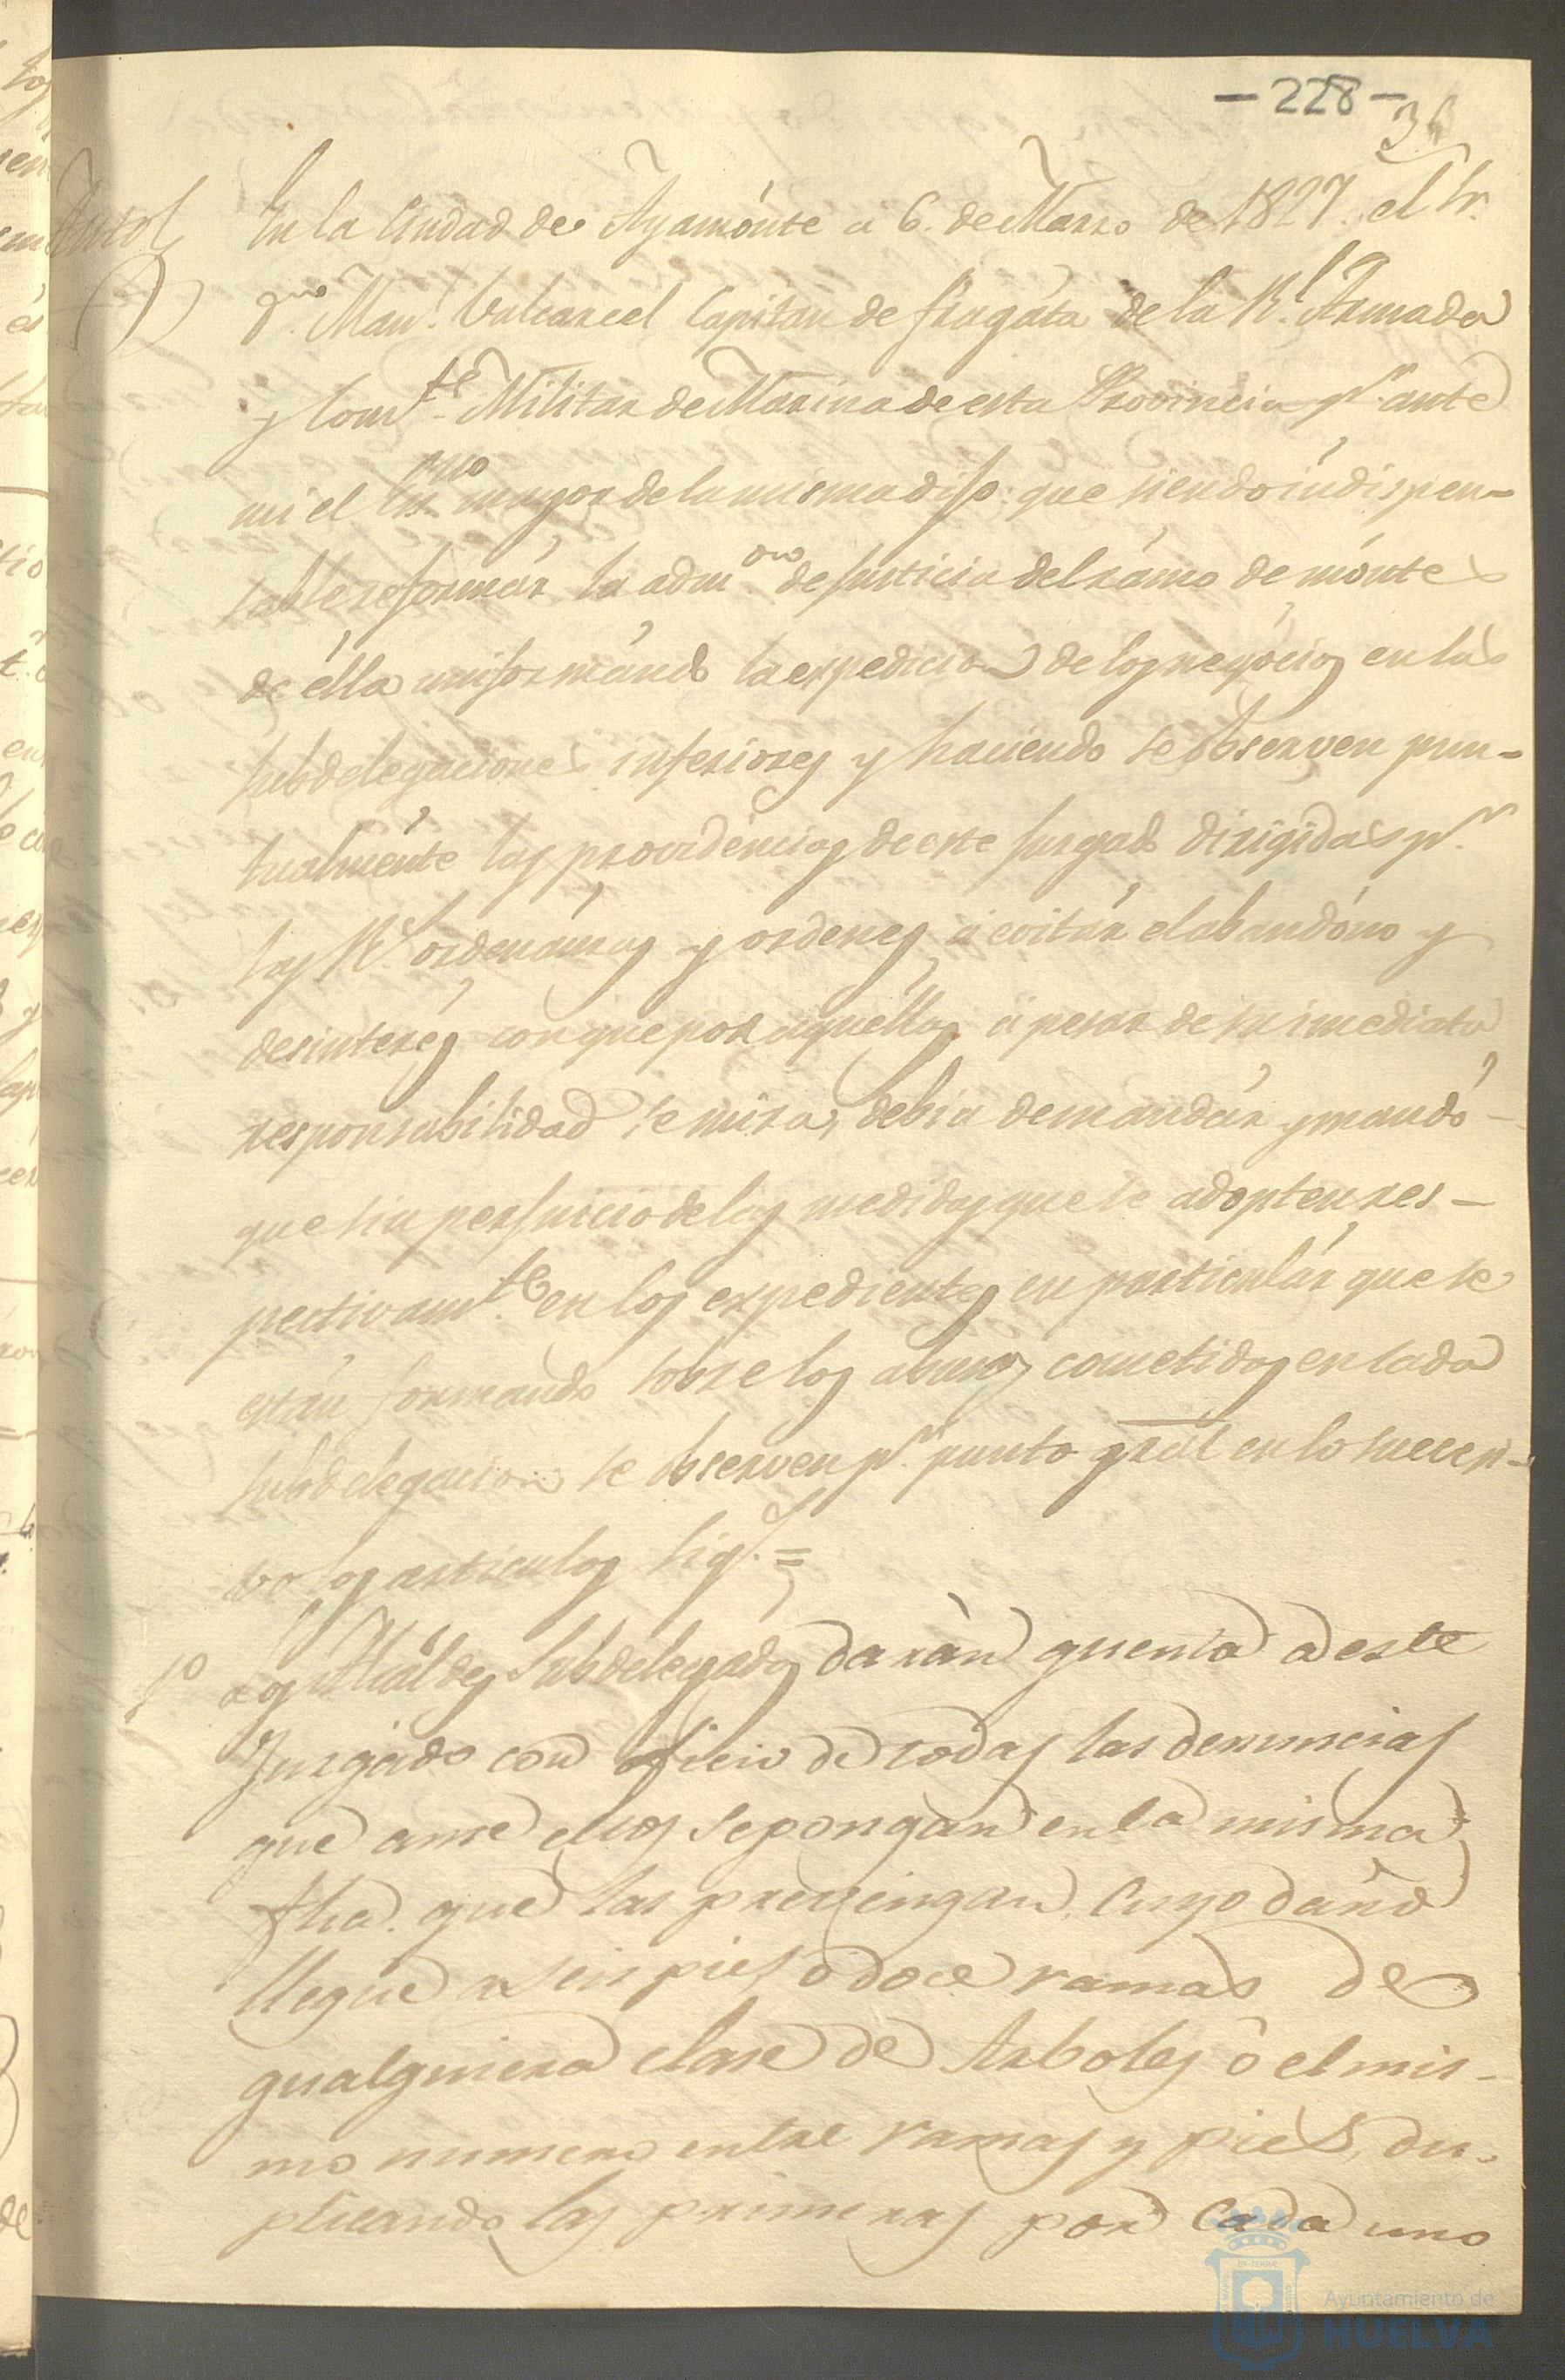 -228-
36
Auto
En la Ciudad de Ayamonte a 6. de Marzo de 1827. el Sr.
Dn. Manl. Valcarcel Capitan de fragata de la Rl. Armada
y Comte. Militar de Marina de esta Provincia pr. ante
mi el Esno. mayor de la misma dijo: que siendo indispen-
sable reformár la admon. de Justicia del rámo de móntes
de élla uniformándo la expedicion de los negócios en las
subdelegaciones inferiores y haciendo se observen pun-
tualménte las providéncias de este Juzgado dirigidas pr.
las Rs. ordenánzas y ordenes á evitár el abandóno y
desinterés con que por aquéllas á pesar de su imediata
responsabilidad se mira, debia de mandár y mandó
que sin perjuicio de las medidas que se adopten res-
pectivamte. en los expedientes en particulár que se
están formando sobre los abusos cometidos en cada
subdelegacion se observen pr. punto gral en lo succesi-
vo los articulos sigs. =
1o Los Alcáldes Subdelegádos darán quenta a este
Juzgado con oficio de todas las denuncias
que ante ellos se pongan en la misma
fha. que las prevengan, cuyo daño
llegue a seis pies o doce ramas de
qualquiera clase de Arboles ó el mis-
mo numero entre ramas y pies, du-
plicando las primeras por cada uno
Ayuntamiento de
HUELVA